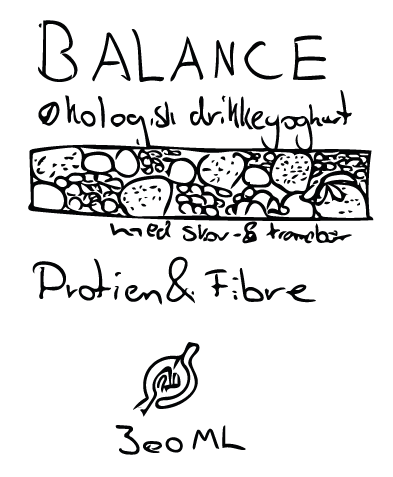 BALANCE
Økologisk drikkeyoghurt
med skov- & tranebær
Protien & Fibre
300 ML